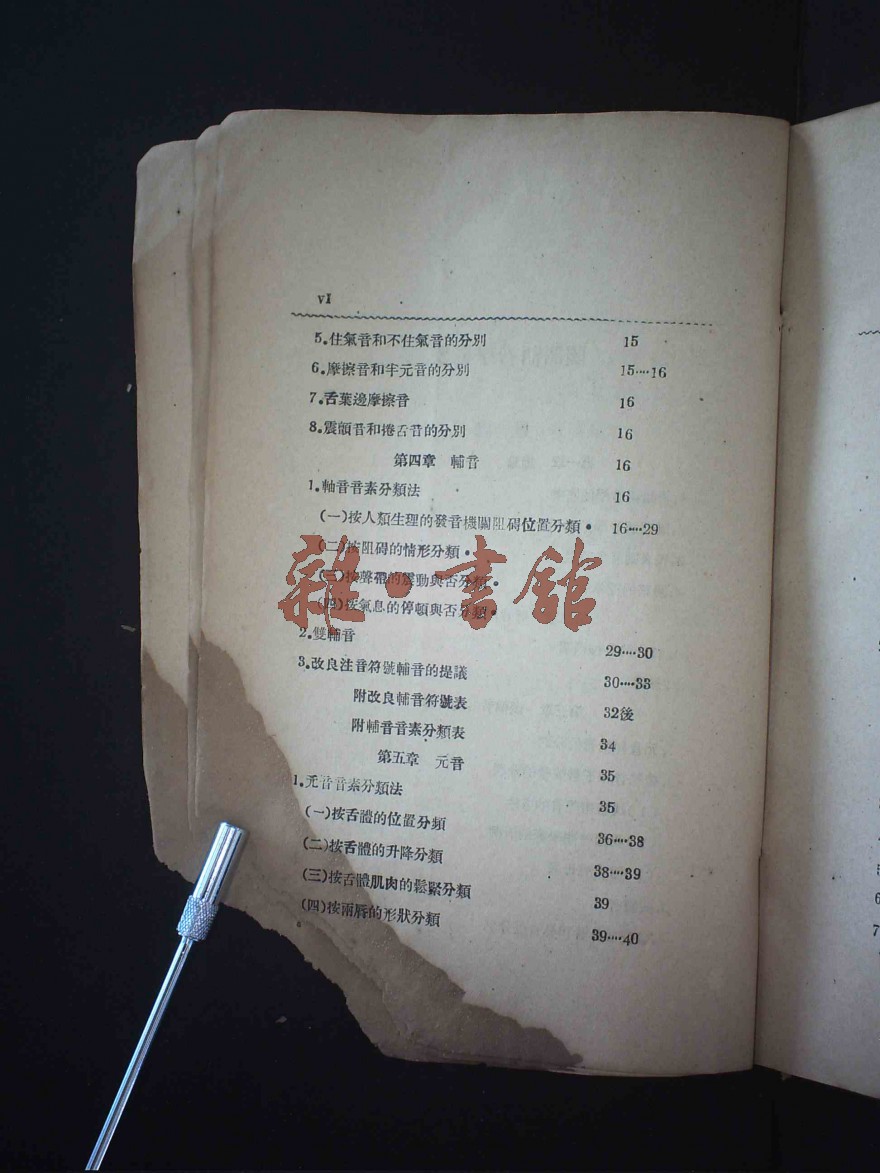 vI
5.住氣音和不住氣音的分別 15
6.摩擦音和半元音的分別 15····16
7.舌葉邊摩擦音 16
8.震顫音和捲舌音的分別 16
第四章 輔音 16
1.軸音音素分類法 16
(一)按人類生理的發音機關阻碍位置分類• 16····29
(二)按阻碍的情形分類•
(三)按聲帶的震動與否分類•
(四)按氣息的停頓與否分類•
雜·書館
2.雙輔音 29····30
3.改良注音符號輔音的提議 30····33
附改良輔音符號表 32後
附輔音音素分類表 34
第五章 元音 35
1.元音音素分類法 35
(一)按舌體的位置分類 36····38
(二)按舌體的升降分類 38····39
(三)按舌體肌肉的鬆緊分類 39
(四)按兩唇的形狀分類 39····40
6
7